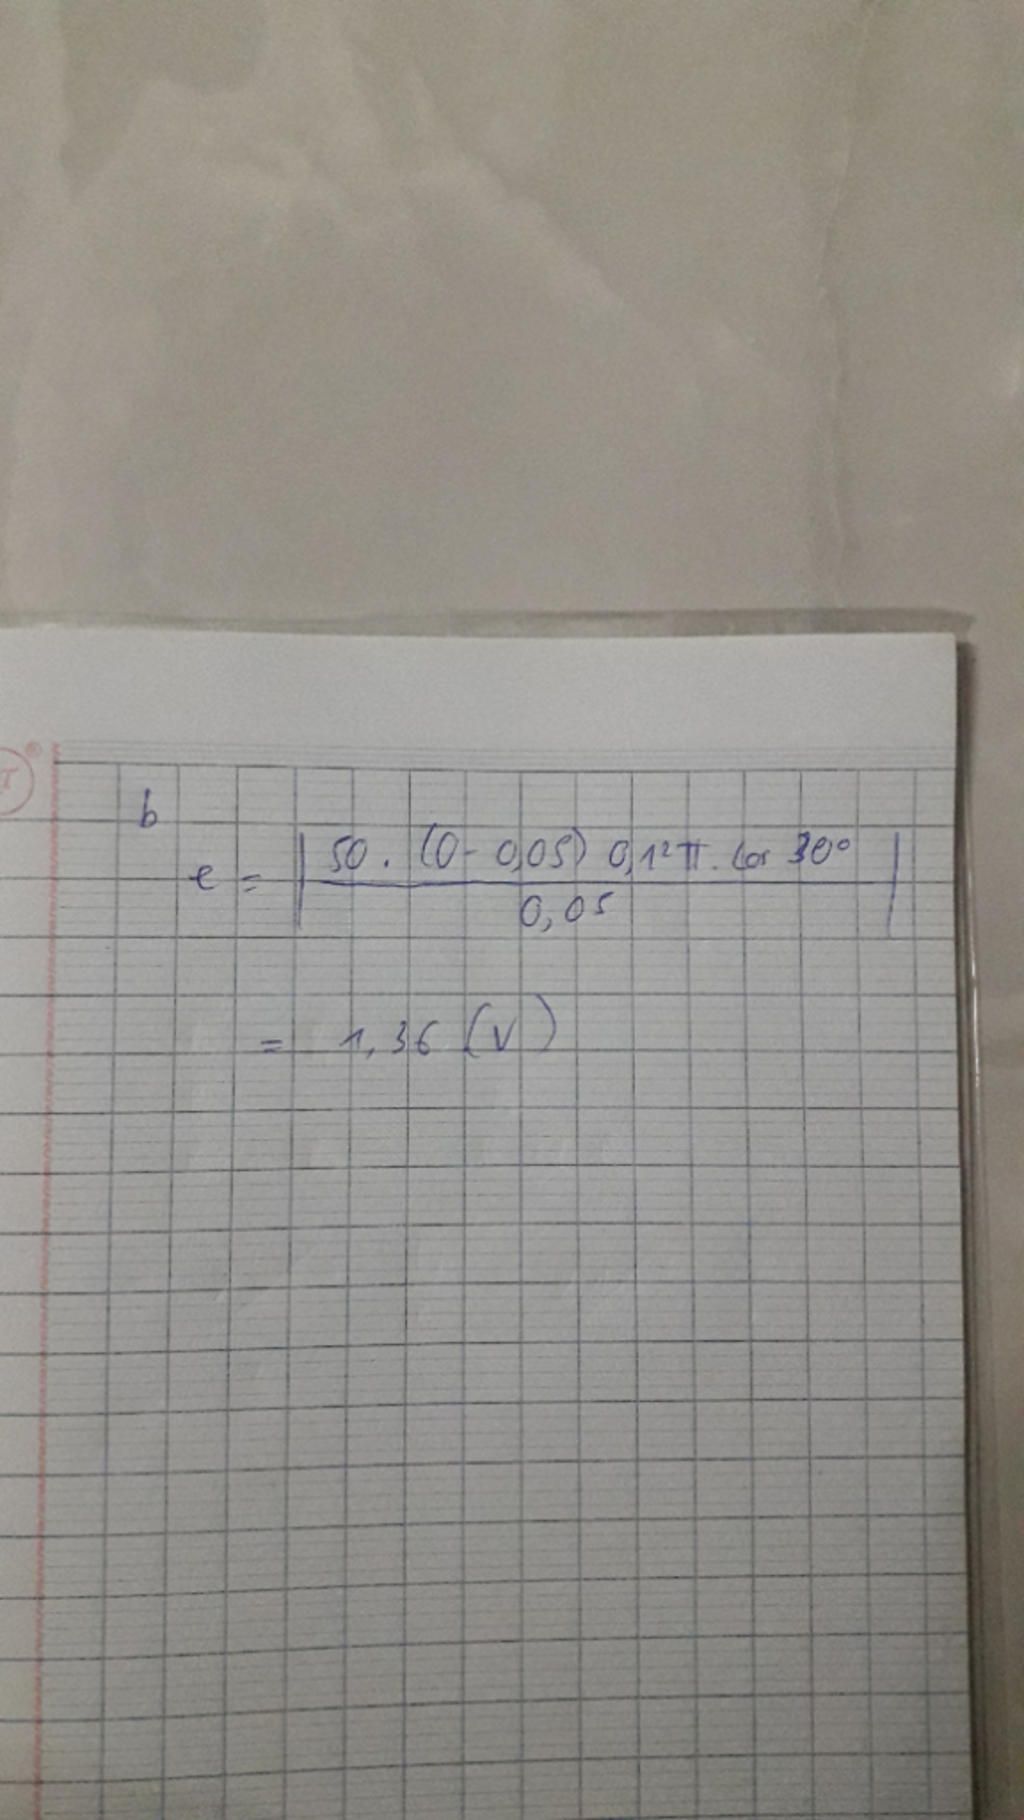 b
e = | 50 . (0 - 0,05) 0,1² π . cos 30° / 0,05 |
= 1,36 (V)